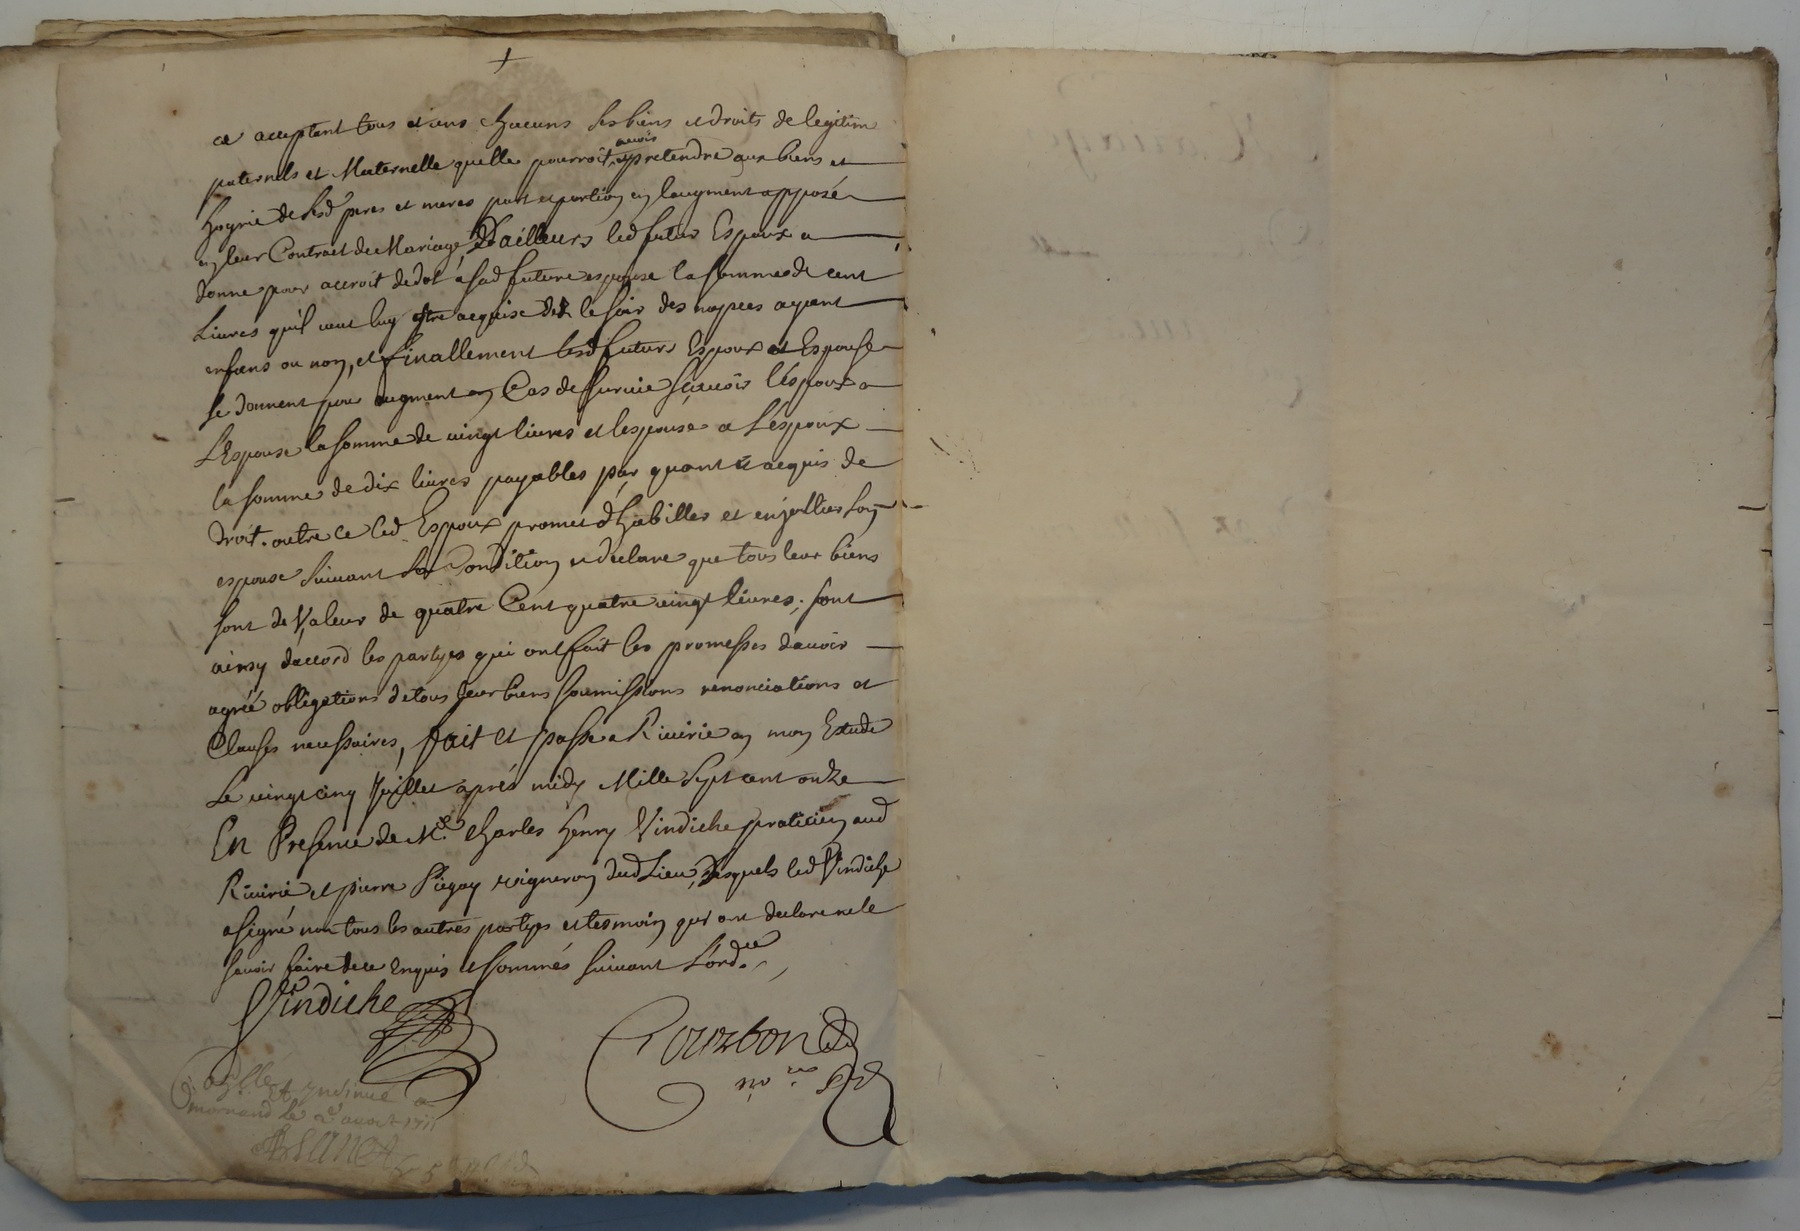 ce acceptant tous et uns chacuns ses biens et droits de legitim
paternels et Maternelle quelle pourroit avoir et pretendre aux biens et
hoyrie de sesd peres et meres part et portion en laugment apposé
en leur Contract de Mariage, D'ailleurs led futur Espoux a
donne pour accroit de dot a sad future espouse la somme de cent
Livres quil veut luy estre acquise dez le soir des nopces ayant
enfans ou non, et finallement lesd futurs Espoux et Espouse
se donnent pour augment en Cas de survie sçavoir l'éspoux a
L'Espouse la somme de vingt livres et lespouse a L'éspoux
la somme de dix livres payables par quant et acquis de
droit. outre ce led Espoux promet d'habilles et enjoïller son
espouse suivant sa Condition et declare que tous leur biens
sont de Valeur de quatre Cent quatre vingt livres; sont
ainsy daccord les partyes qui ont fait les promesses davoir
agréé obligations de tous leur biens soumissions renonciations et
Clauses necessaires, fait et passe a Riverie en mon Estude
Le vingt cinq Juillet aprés midy Mille Sept cent onze
En Presence de Me Charles Henry Vindiche praticien aud
Riverie et pierre Piegay vigneron dud Lieu, Desquels led Vindiche
a signé non tous les autres partyes et tesmoin qui ont declare ne le
sçavoir faire de ce Enquis et sommés suivant L'ordce
Vindiche
Courbon
nore Rd
et Insinué a
mornand le 2e aoust 1711